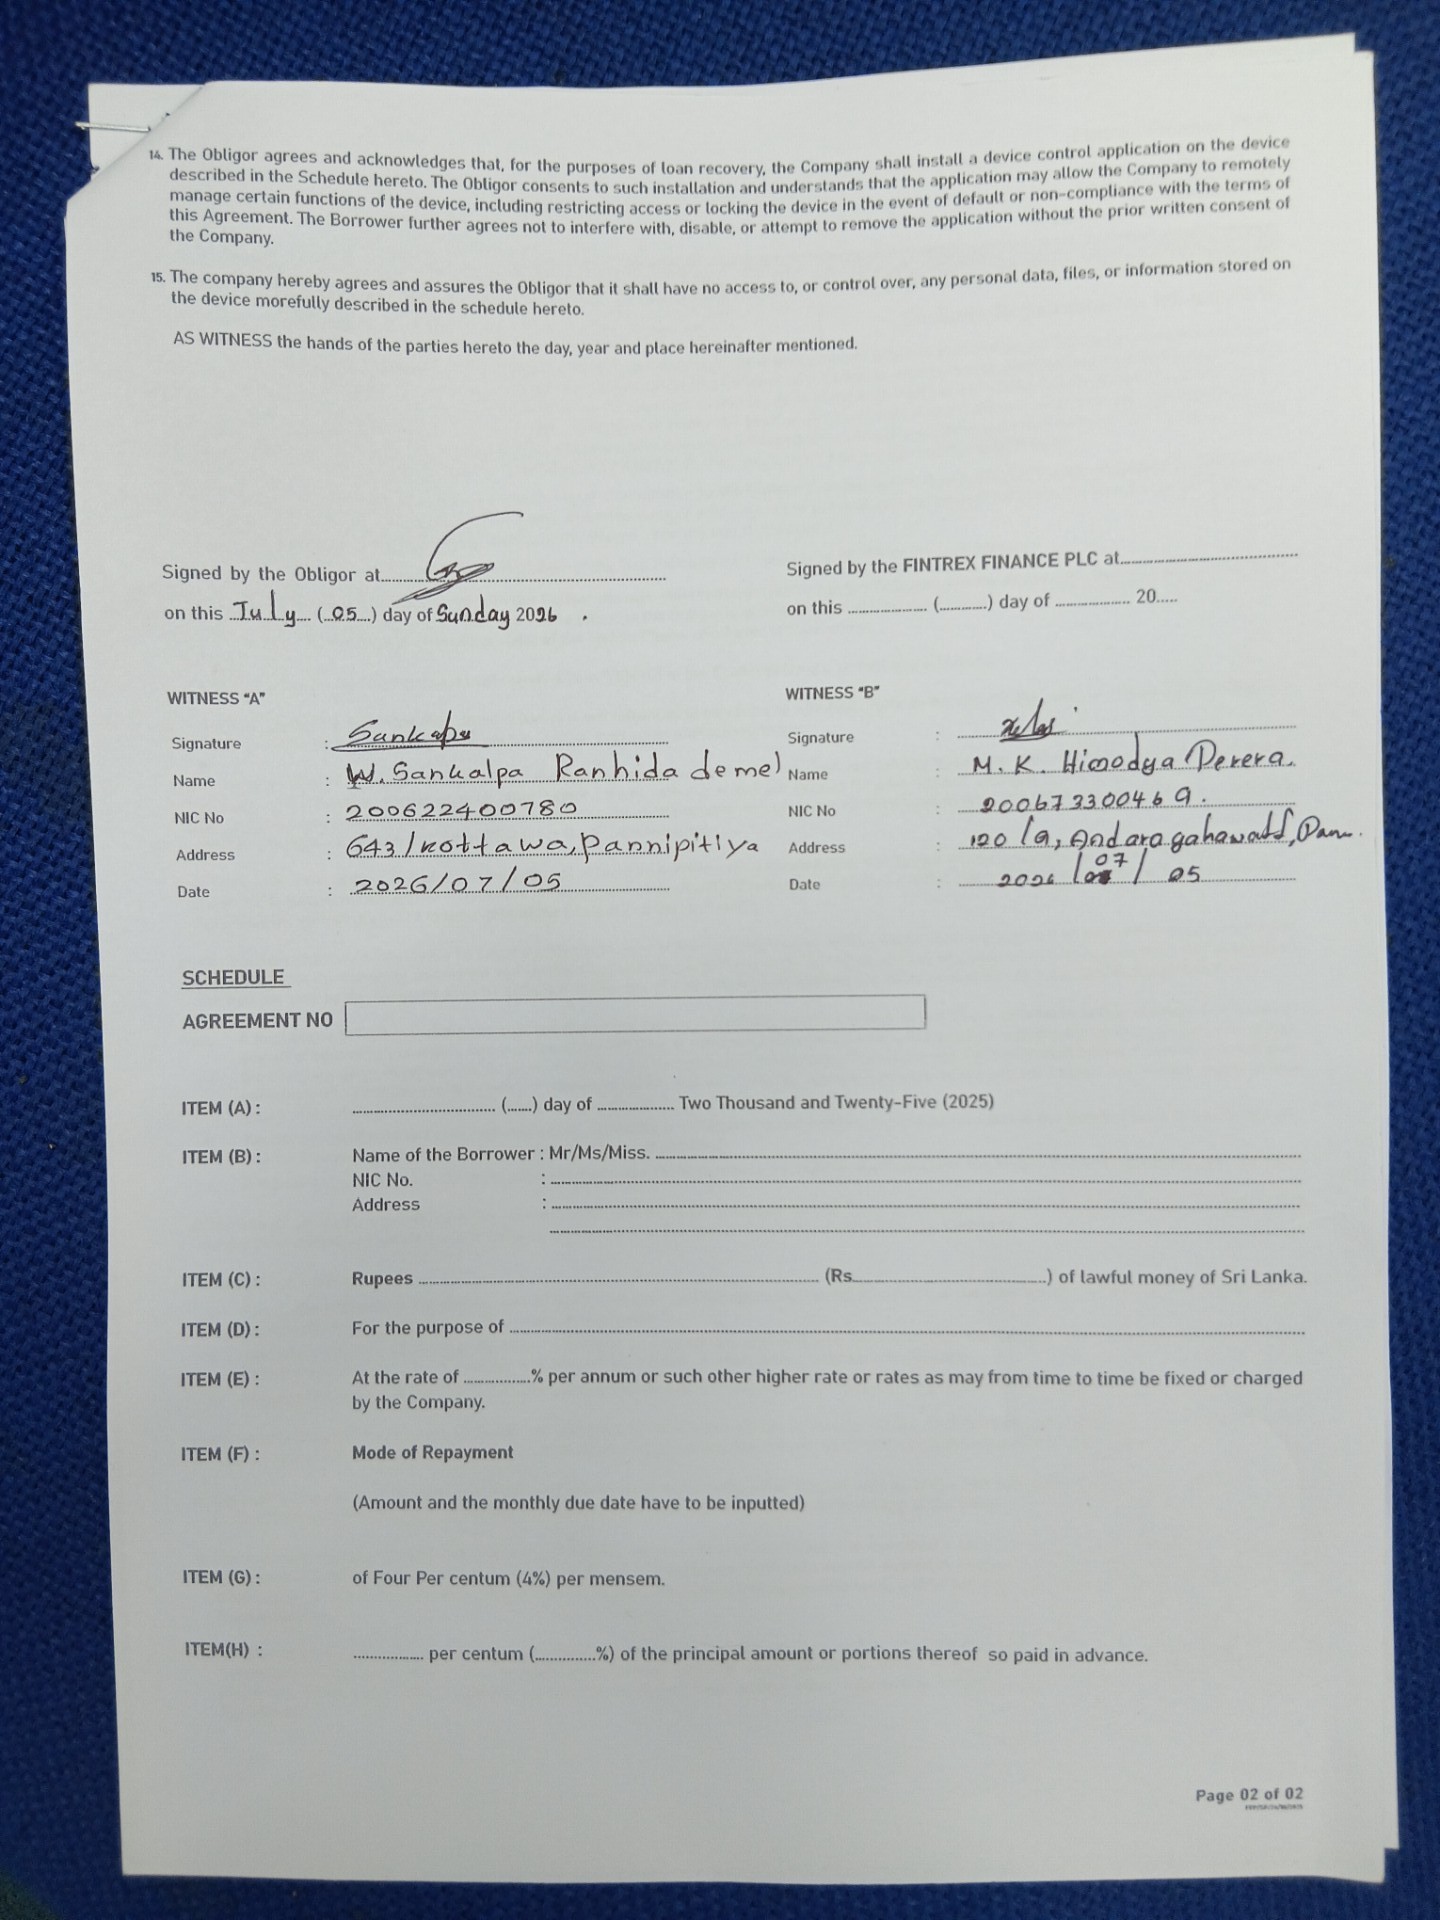 14. The Obligor agrees and acknowledges that, for the purposes of loan recovery, the Company shall install a device control application on the device
described in the Schedule hereto. The Obligor consents to such installation and understands that the application may allow the Company to remotely
manage certain functions of the device, including restricting access or locking the device in the event of default or non-compliance with the terms of
this Agreement. The Borrower further agrees not to interfere with, disable, or attempt to remove the application without the prior written consent of
the Company.
15. The company hereby agrees and assures the Obligor that it shall have no access to, or control over, any personal data, files, or information stored on
the device morefully described in the schedule hereto.
AS WITNESS the hands of the parties hereto the day, year and place hereinafter mentioned.
Signed by the Obligor at..............................
on this July (05) day of Sunday 2026 .
Signed by the FINTREX FINANCE PLC at..............................
on this .................... (............) day of .................... 20.....
WITNESS "A"
Signature : Sankalpa
Name : W. Sankalpa Ranhida demel
NIC No : 200622400780
Address : 643/kottawa, Pannipitiya
Date : 2026/07/05
WITNESS "B"
Signature :
Name : M. K. Himodya Perera.
NIC No : 200673300469.
Address : 120/a, Andaragahawatt, Pann.
Date : 2026/07/05
SCHEDULE
AGREEMENT NO
ITEM (A) : .................................... (.......) day of .................... Two Thousand and Twenty-Five (2025)
ITEM (B) : Name of the Borrower : Mr/Ms/Miss. ....................
NIC No. : ....................
Address : ....................
....................
ITEM (C) : Rupees .................... (Rs....................) of lawful money of Sri Lanka.
ITEM (D) : For the purpose of ....................
ITEM (E) : At the rate of .................% per annum or such other higher rate or rates as may from time to time be fixed or charged
by the Company.
ITEM (F) : Mode of Repayment
(Amount and the monthly due date have to be inputted)
ITEM (G) : of Four Per centum (4%) per mensem.
ITEM(H) : .................. per centum (...............%) of the principal amount or portions thereof so paid in advance.
Page 02 of 02